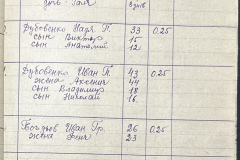 дочь Галя
Дубовенко Надя П. 33 0,25
сын Виктор 15
сын Анатолий 12
Дубовенко Иван П. 43 0,25
жена Аксения 44
сын Владимир 18
сын Николай 16
Иван Гр. 26 0,25
жена 23